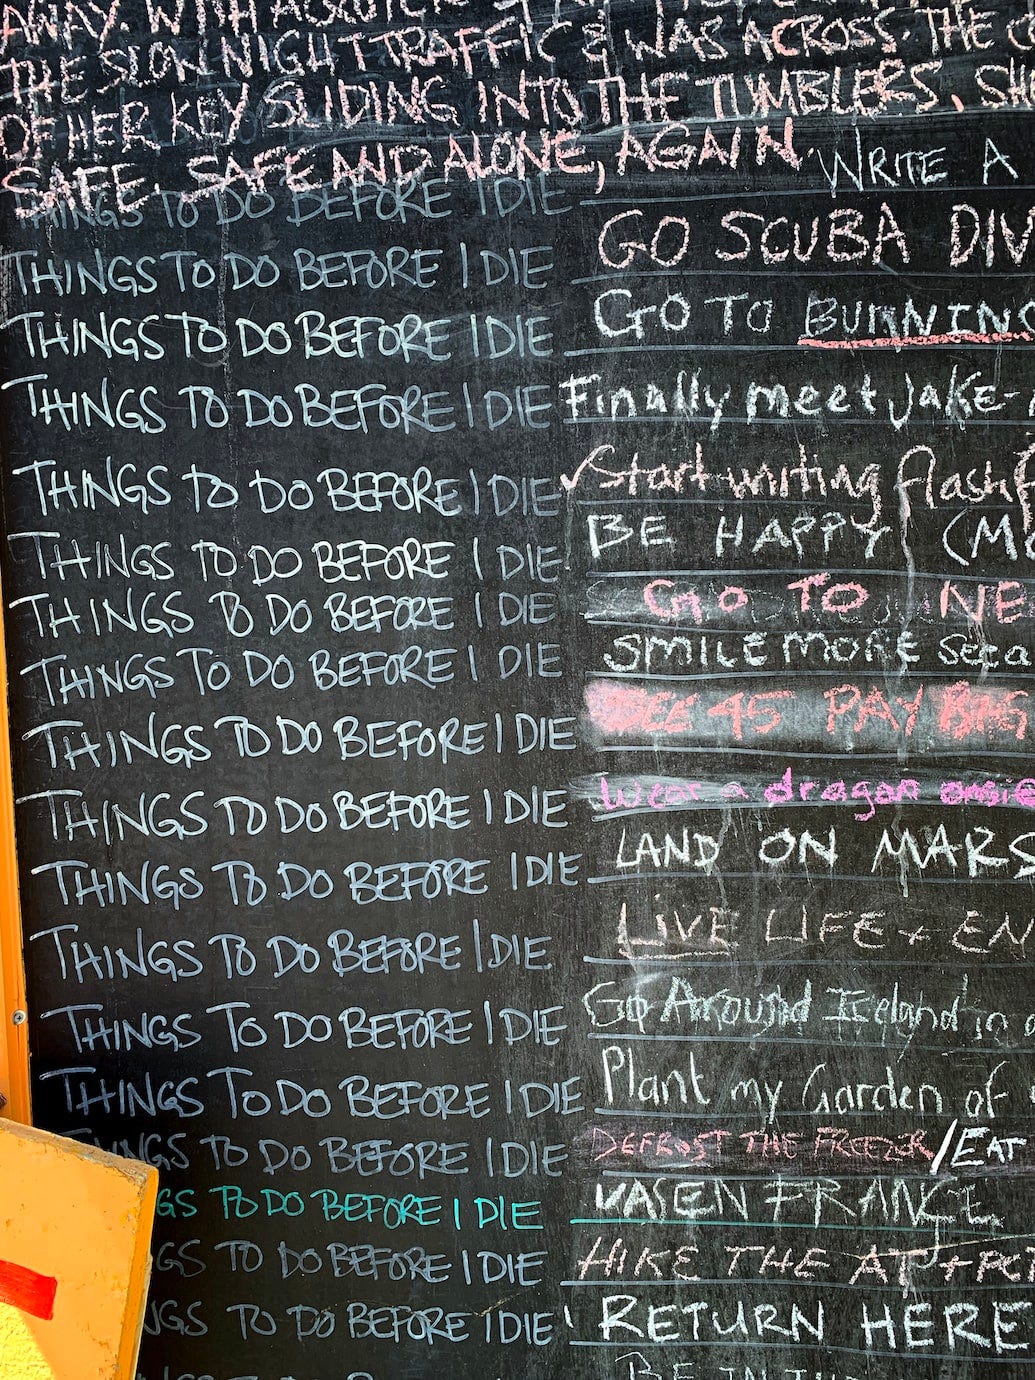 AWAY WITH
THE SLOW NIGHT TRAFFIC & WAS ACROSS. THE
OF HER KEY SLIDING INTO THE TUMBLERS. SH
SAFE. SAFE AND ALONE, AGAIN.
THINGS TO DO BEFORE I DIE WRITE A
THINGS TO DO BEFORE I DIE GO SCUBA DIV
THINGS TO DO BEFORE I DIE GO TO BURNING
THINGS TO DO BEFORE I DIE Finally meet Jake-
THINGS TO DO BEFORE I DIE ✓Start writing flash
THINGS TO DO BEFORE I DIE BE HAPPY (M
THINGS TO DO BEFORE I DIE GO TO NE
THINGS TO DO BEFORE I DIE SMILE MORE
THINGS TO DO BEFORE I DIE 45 PAY
THINGS TO DO BEFORE I DIE wear a dragon onsie
THINGS TO DO BEFORE I DIE LAND ON MARS
THINGS TO DO BEFORE I DIE LIVE LIFE + EN
THINGS TO DO BEFORE I DIE Go Around Iceland in
THINGS TO DO BEFORE I DIE Plant my Garden of
THINGS TO DO BEFORE I DIE DEFROST THE FREEZER/EAT
GS TO DO BEFORE I DIE
GS TO DO BEFORE I DIE HIKE THE AT
NGS TO DO BEFORE I DIE RETURN HERE
BE IN